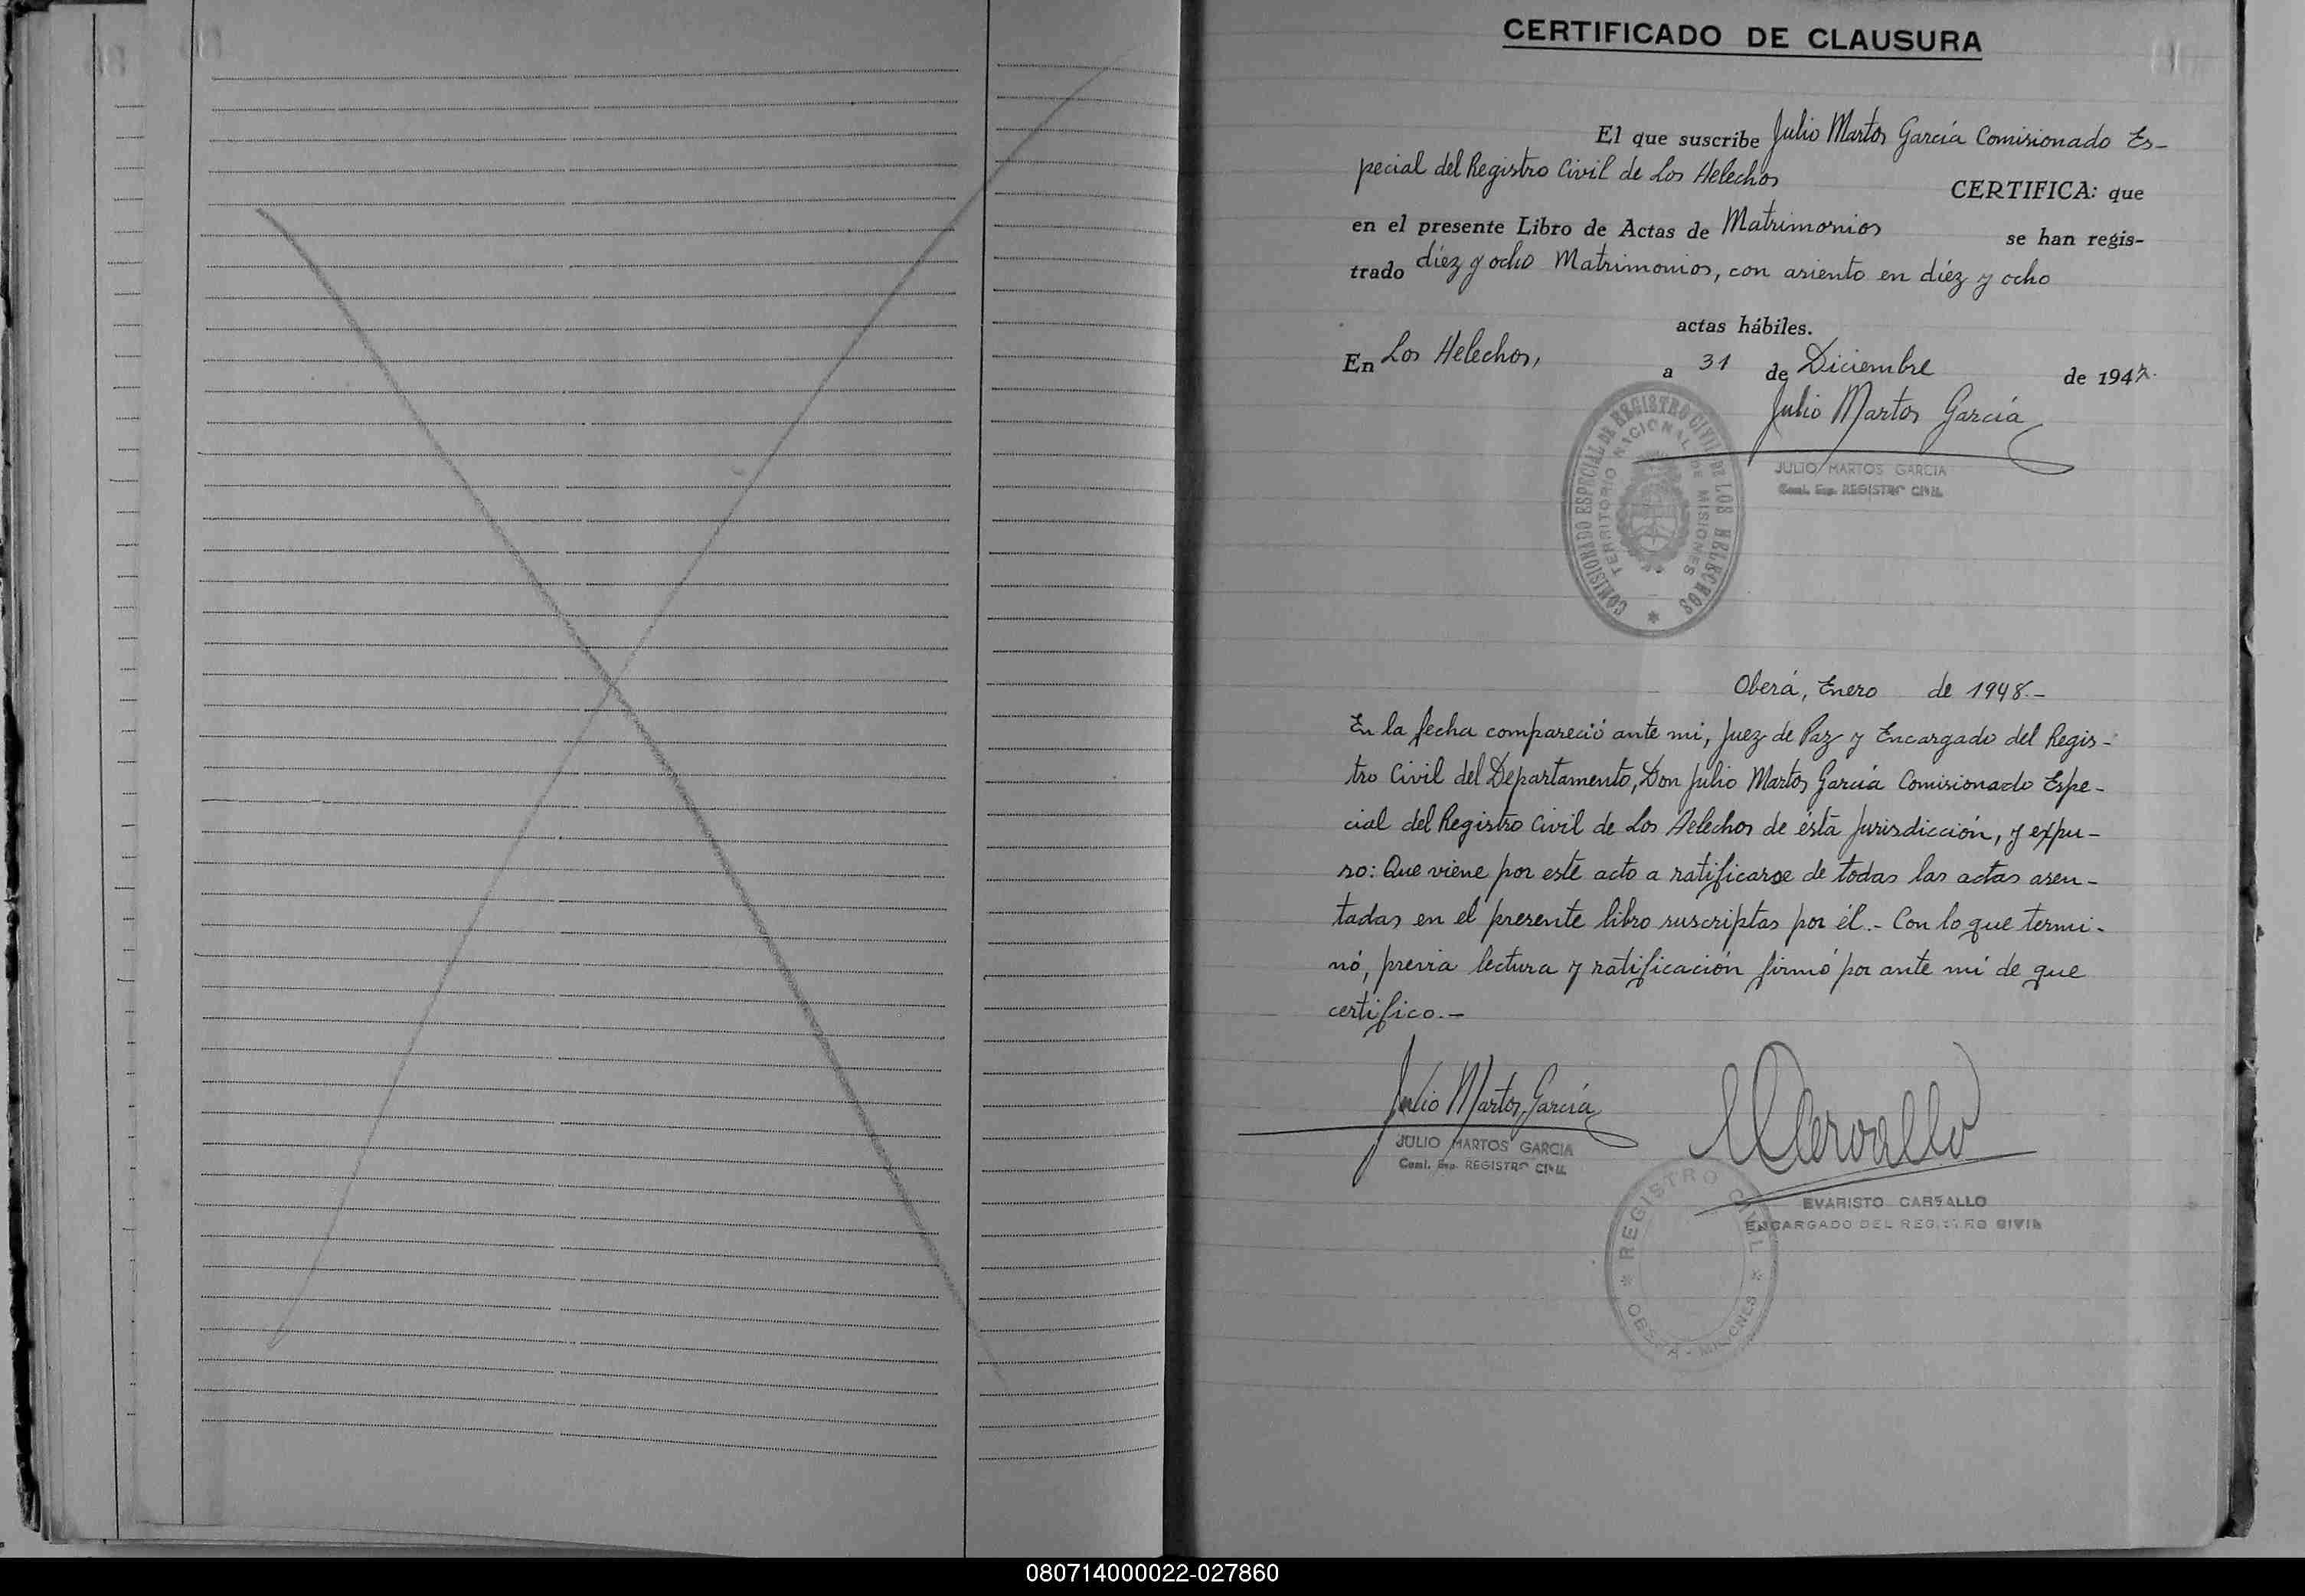 CERTIFICADO DE CLAUSURA
El que suscribe Julio Martos García Comisionado Es-
pecial del Registro Civil de Los Helechos CERTIFICA: que
en el presente Libro de Actas de Matrimonios se han regis-
trado diez y ocho Matrimonios, con asiento en diéz y ocho
actas hábiles.
En Los Helechos, a 31 de Diciembre de 1947.
Julio Martos García
JULIO MARTOS GARCIA
Comi. Esp. REGISTRO CIVIL
COMISIONADO ESPECIAL DE REGISTRO CIVIL DE LOS HELECHOS
TERRITORIO NACIONAL DE MISIONES
Oberá, Enero de 1948.-
En la fecha compareció ante mi, Juez de Paz y Encargado del Regis-
tro Civil del Departamento, Don Julio Martos García Comisionado Espe-
cial del Registro Civil de Los Helechos de ésta Jurisdicción, y expu-
so: Que viene por este acto a ratificarse de todas las actas asen-
tadas en el presente libro suscriptas por él.- Con lo que termi-
nó, previa lectura y ratificación firmó por ante mí de que
certifico.-
Julio Martos García
JULIO MARTOS GARCIA
Comi. Esp. REGISTRO CIVIL
EVARISTO CARVALLO
ENCARGADO DEL REGISTRO CIVIL
REGISTRO CIVIL
OBERA - MISIONES
080714000022-027860